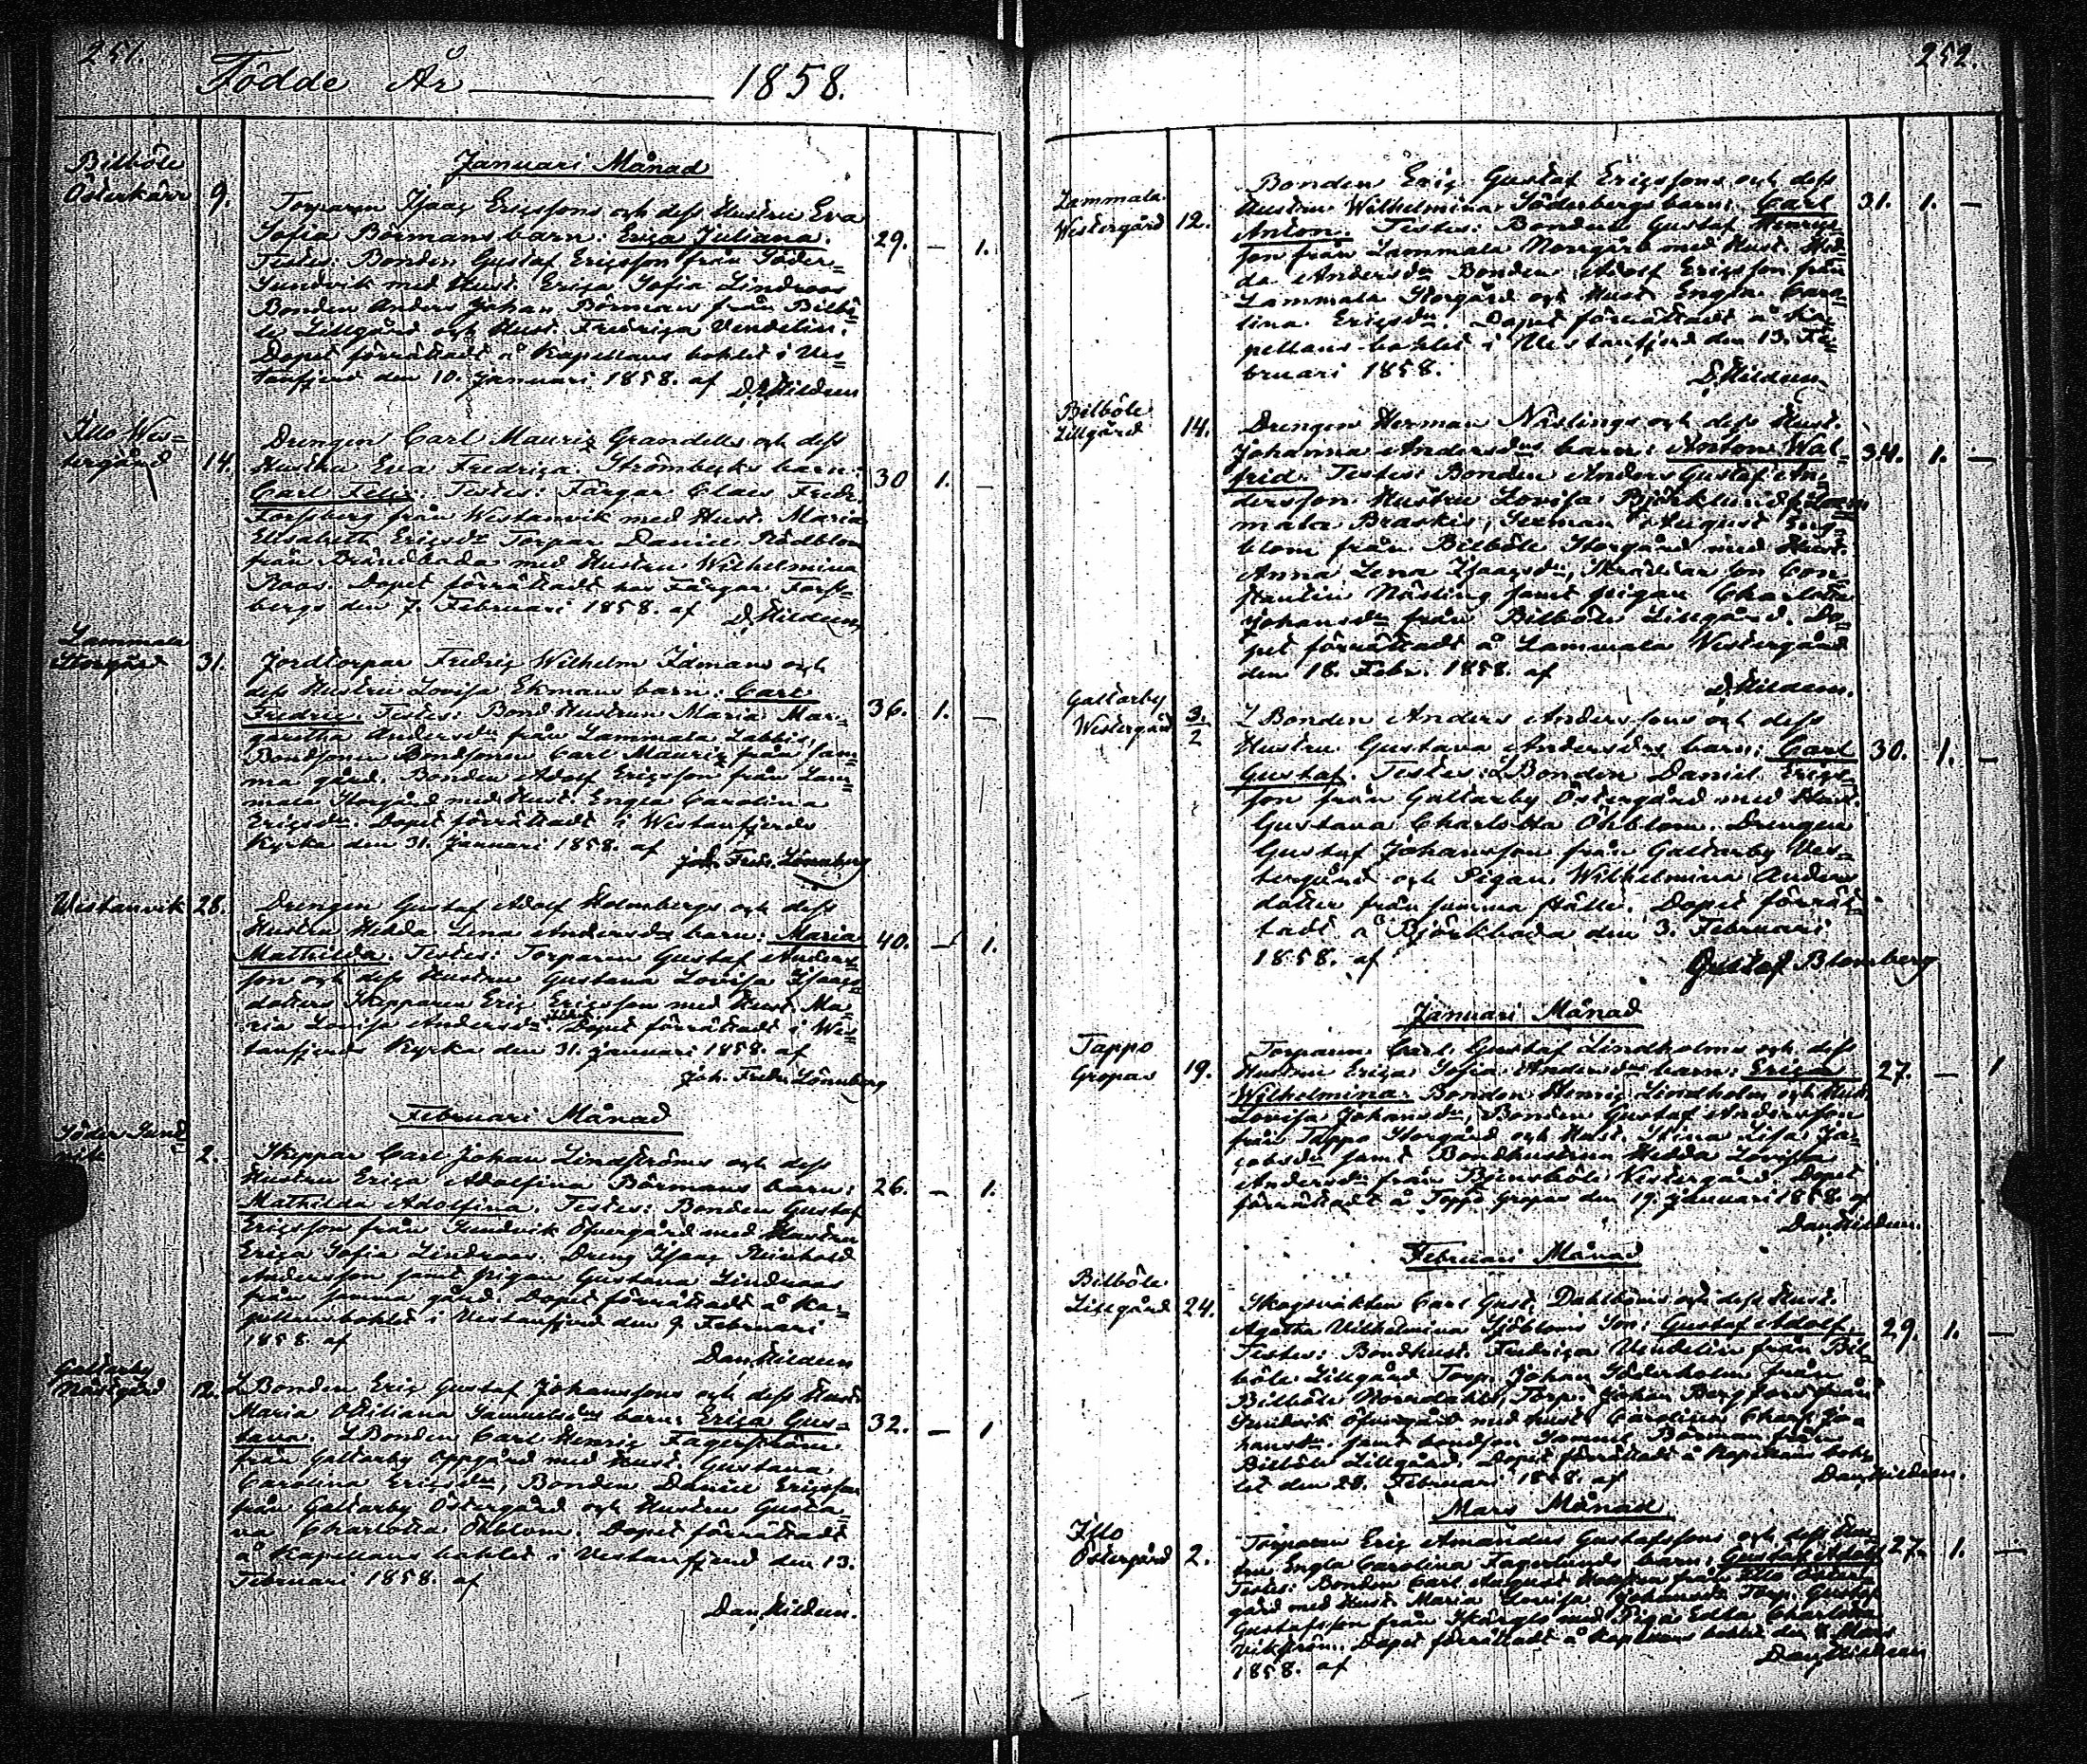 251.
Födde År 1858.
Januari Månad
Bilböle
Österkärr 9.
Torparen Isaac Ericssons och dess Hustru Eva
Sofia Börmans barn: Erica Juliana. 29. — 1.
Testes: Bonden Gustaf Ericsson från Söder=
Sundvik med Hust. Erica Sofia Lindroos
Bonden Anders Johan Börman från Bilbö=
le Lillgård och Hust. Fredrica Vendelin.
Dopet förrättadt å Kapellans bohlet i Ves=
tanfjerd den 10. Januari 1858. af D. Hildeen
Illo Wes=
tergård 14.
Drengen Carl Mauriz Grandells och dess
Hustru Eva Fredrica Strömbecks barn: 30 1. —
Carl Felix. Testes: Färgar Claes Fredr.
Forssberg från Westanvik med Hust. Maria
Elisabeth Ericsdr Torpar Daniel Rödblom
från Brändboda med Hustru Wilhelmina
Roos. Dopet förrättadt hos Färgar Forss=
bergs den 7. Februari 1858. af D. Hildeen
Lammala
Storgård 31.
Jordtorpar Fredric Wilhelm Idmans och
dess Hustru Lovisa Ekmans barn: Carl 36. 1. —
Fredric. Testes: Bond Hustrun Maria Mar=
garetha Andersdr från Lammala Labbis,
Bondsonen Bondsonen Carl Mauriz från sam=
ma gård. Bonden Adolf Ericsson från Lam=
mala Storgård med Hust. Engla Carolina
Ericsdr. Dopet förrättadt i Westanfjerds
Kyrka den 31. Januari 1858. af
Joh. Fredr. Lönnberg
Westanvik 28.
Drengen Gustaf Adolf Holmbergs och dess
Hustru Hedda Lena Andersdrs barn: Maria 40. — 1.
Mathilda. Testes: Torparen Gustaf Anders=
son och dess Hustru Gustava Lovisa Isaacs
dotters Skepparen Eric Ericsson med Hust. Ma=
ria Lovisa Andersdr. Dopet förrättadt i Wes=
tanfjerds Kyrka den 31. Januari 1858. af
Joh. Fredr. Lönnberg
Februari Månad
Söder Sund=
vik 2.
Skeppar Carl Johan Lindströms och dess
Hustru Erica Adolfina Börmans barn: 26. — 1.
Mathilda Adolfina. Testes: Bonden Gustaf
Ericsson från Sundvik Öfvergård med Hustru
Erica Sofia Lindroos. Dreng Isaac Reinhold
Andersson samt pigan Gustava Lindroos
från samma gård. Dopet förrättadt å Ka=
pellansbohlet i Vestanfjerd den 9. Februari
1858. af
Dan. Hildeen
Galtarby
Nästgård 12.
L Bonden Eric Gustaf Johanssons och dess Hust.
Maria Ottiliana Samuelsdrs barn: Erica Gus= 32. — 1
tava. L Bonden Carl Henric Fagerström
från Galtarby Oppgård med Hust. Gustava
Carolina Ericsdr, Bonden Daniel Ericsson
från Galtarby Östergård och Hustru Gusta=
va Charlotta Öhblom. Dopet förrättadt
å Kapellans bohlet i Vestanfjerd den 13.
Februari 1858. af
Dan. Hildeen.
252.
Lammala
Westergård 12.
Bonden Eric Gustaf Ericssons och dess
Hustru Wilhelmina Söderbergs barn: Carl 31. 1. —
Anton. Testes: Bonden Gustaf Henrics=
son från Lammala Norrgård med Hust. Hed=
da Andersdr Bonden Adolf Ericsson från
Lammala Storgård och Hust. Engla Caro=
lina Ericsdr. Dopet förrättadt å Ka=
pellans-bohlet i Westanfjerd den 13. Fe=
bruari 1858.
D. Hildeen
Bilböle
Lillgård 14.
Drengen Herman Näslings och dess Hust.
Johanna Andersdrs barn: Anton Wal= 34. 1. —
frid. Testes: Bonden Anders Gustaf An=
dersson Hustru Lovisa Björklund fr. Lam=
mala Braskis, Sexman August Eng=
blom från Bilböle Storgård med Hust.
Anna Lena Isaacsdr, Skräddar son Con=
stantin Näsling samt pigan Charlotta
Johansdr från Bilböle Lillgård. Do=
pet förrättadt å Lammala Westergård
den 18. Febr. 1858. af
D. Hildeen.
Galtarby
Westergård 3/2
L Bonden Anders Anderssons och dess
Hustru Gustava Andersdrs barn: Carl 30. 1. —
Gustaf. Testes: L Bonden Daniel Erics=
son från Galtarby Östergård med Hust.
Gustava Charlotta Öhblom. Drengen
Gustaf Johansson från Galtarby Ves=
tergård och Pigan Wilhelmina Anders
dotter från samma ställe. Dopet förrät=
tadt å Björkboda den 3. Februari
1858. af
Gustaf Blomberg
Januari Månad
Tappo
Gropas 19.
Torparen Carl Gustaf Lindholms och dess
Hustru Erica Sofia Andersdrs barn: Erica 27. — 1
Wilhelmina. Bonden Henric Lindholm och Hust.
Lovisa Johansdr, Bonden Gustaf Andersson
från Tappo Storgård och Hust. Stina Lisa Ja=
cobsdr samt Bondhustrun Hedda Lovisa
Andersdr från Bjensböle Vestergård. Dopet
förrättadt å Tappo Gropas den 19. Januari 1858. af
Dan. Hildeen.
Februari Månad
Bilböle
Lillgård 24.
Skogsvakten Carl Gust. Dahlböms och dess Hust.
Agatha Vilhelmina Sjöbloms Son: Gustaf Adolf. 29. 1. —
Testes: Bondhust. Fredrica Vendelin från Bil=
böle Lillgård Torp. Johan Söderholm från
Bilböle Norrdahl, Torp. Johan Bergfors från
Sundvik Öfvergård med hust. Carolina Charl. Jo=
hansdr. samt bondson Samuel Börman från
Bilböle Lillgård. Dopet förrättadt å Kapellans boh=
let den 28. Februari 1858. af
Dan. Hildeen.
Mars Månad
Illo
Östergård 2.
Torparen Eric Amandus Gustafssons och dess Hus=
tru Engla Carolina Fagerlunds barn: Gustaf Adolf 27. 1. —
Testes: Bonden Carl August från Illo Öster=
gård med Hust. Maria Lovisa Johansdr Torp. Gustaf
Gustafsson från med Piga Edla Charlotta
Vikström. Dopet förrättadt å Kapellans bohlet den 8 Mars
1858. af
Dan. Hildeen